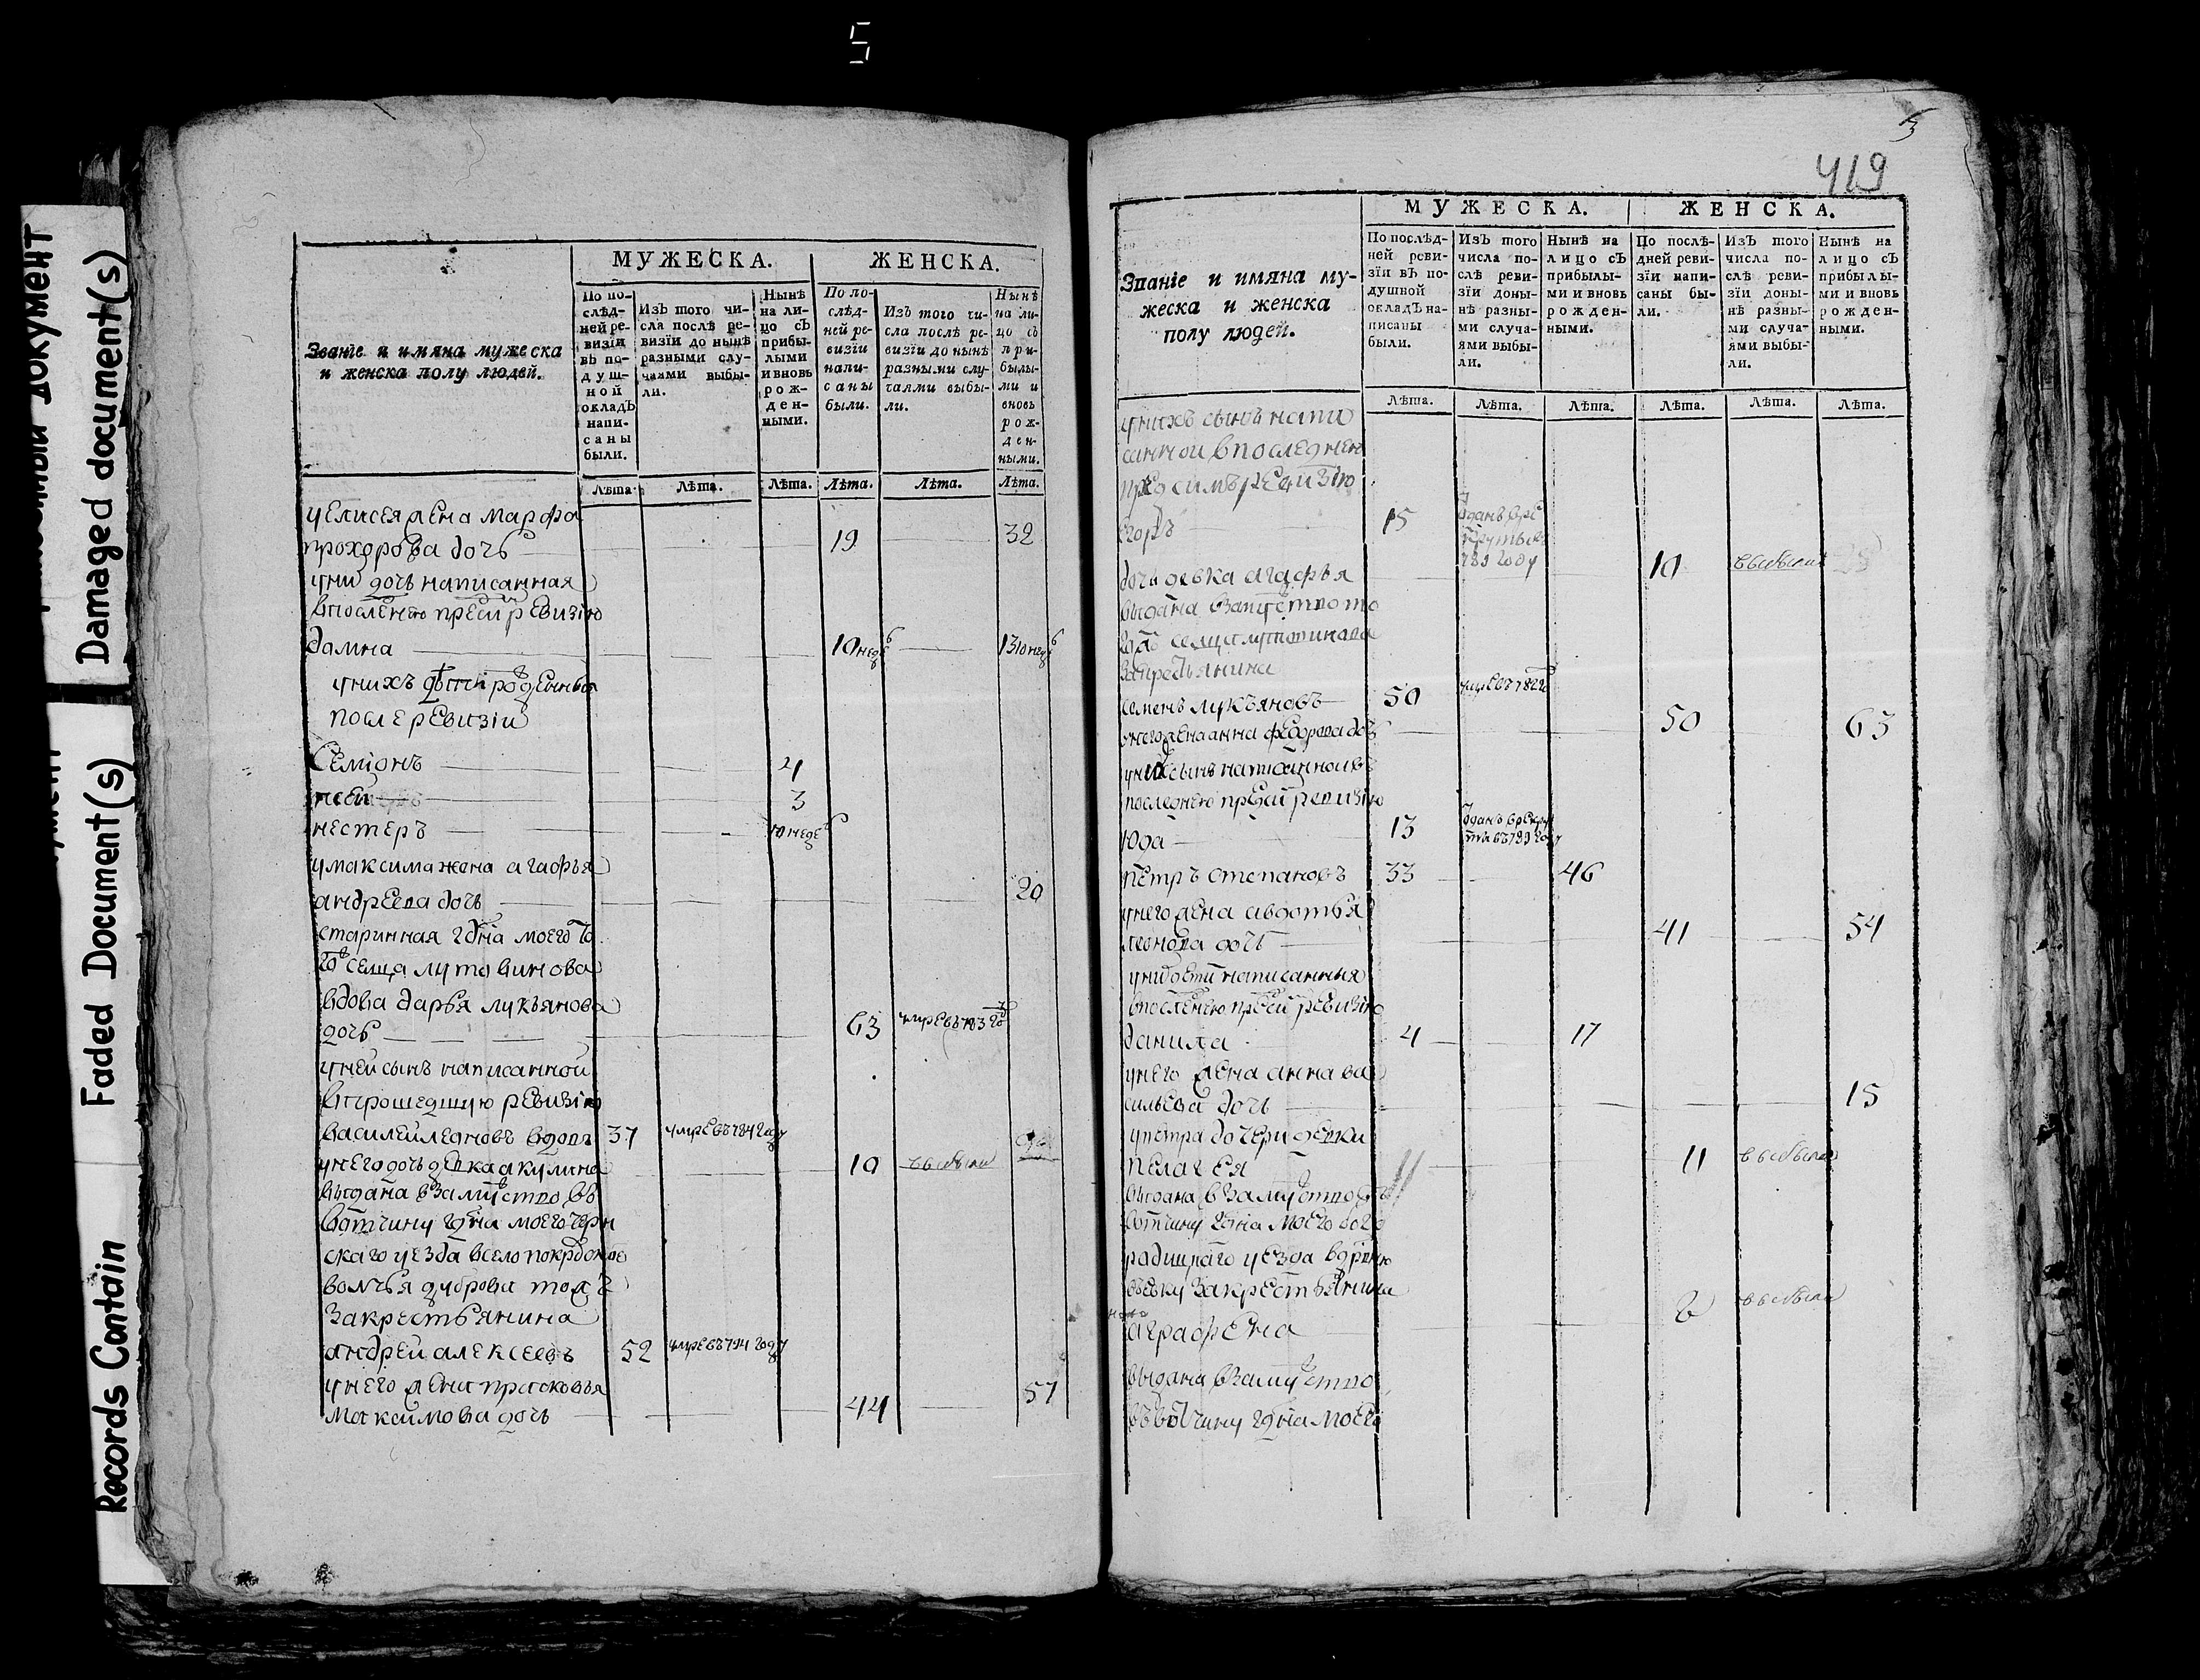 5
ДОКУМЕНТ
Damaged document(s)
Faded Document(s)
Records Contain
МУЖЕСКА.
ЖЕНСКА.
Званїе и имяна мужеска
и женска полу людей.
По по-
слѣд-
ней ре-
визїи
въ по-
душ-
ной
окладъ
напи-
саны
были.
Изъ того чи-
сла послѣ ре-
визїи до нынѣ
разными слу-
чаями выбы-
ли.
Нынѣ
на ли-
цо съ
прибы-
лыми
и вновь
рож-
ден-
ными.
По по-
слѣд-
ней ре-
визїи
напи-
саны
были.
Изъ того чи-
сла послѣ ре-
визїи до нынѣ
разными слу-
чаями выбы-
ли.
Нынѣ
на ли-
цо съ
при-
былы-
ми и
вновь
рож-
ден-
ными.
Лѣта. Лѣта. Лѣта. Лѣта. Лѣта. Лѣта.
у елисея жена марфа
прохорова дочь 19 32
у ни дочь написанная
в послению пресй ревизию
домна 10 неде 13 10 неде
у нихъ дѣти рожденныя
после ревизїи
Семїонъ 4
3
нестеръ 10 неде
у максима жена агафья
андреева дочь 20
старинная гдна моего
селца лутовинова
вдова дарья лукьянова
дочь 63 умре въ 783 го
у ней сынъ написанной
в прошедшую ревизїю
василей леоновъ вдовъ 37 умре въ 784 году
у него дочь девка акулина 10 выбыла
выдана в замужство въ
вотчину гдна моего черн
скаго уезда в село покровское
волчья дуброва тожъ
за крестьянина
андрей алексеевъ 52 умре въ 794 году
у него жена прасковья
максимова дочь 44 57
419
МУЖЕСКА.
ЖЕНСКА.
Званїе и имяна му-
жеска и женска
полу людей.
По послѣд-
ней реви-
зїи въ по-
душной
окладъ на-
писаны
были.
Изъ того
числа по-
слѣ реви-
зїи доны-
нѣ разны-
ми случа-
ями выбы-
ли.
Нынѣ на
лицо съ
прибылы-
ми и вновь
рожден-
ными.
По послѣ-
дней реви-
зїи напи-
саны бы-
ли.
Изъ того
числа по-
слѣ реви-
зїи доны-
нѣ разны-
ми случа-
ями выбы-
ли.
Нынѣ на
лицо съ
прибылы-
ми и вновь
рожден-
ными.
Лѣта. Лѣта. Лѣта. Лѣта. Лѣта. Лѣта.
у нихъ сынъ напи
санной в последнею
пред симъ ревизїю
Егоръ 15 Зданъ в ре
круты въ
789 году
дочь девка агафья 10 выбыла
выдана в замужство то
гожъ селца лутовинова
за крестьянина
семенъ лукъяновъ 50 умре въ 782 го
у него жена анна федорова дочь 50 63
у них сынъ написанной в
последнею пресй ревизїю
Юда 13 Зданъ в рекру
ты въ 789 году
петръ степановъ 33 46
у него жена авдотья
леонова дочь 41 54
у ни дети написанныя
в послению пресй ревизїю
данила 4 17
у него жена анна ва
сильева дочь 15
у петра дочери девки
пелагея 11 выбыла
выдана в замужство въ
вотчину гдна моего болхо
уезда в дрвню
за крестьянина
аграфена выбыла
выдана в замужство
въ вотчину гдна моего